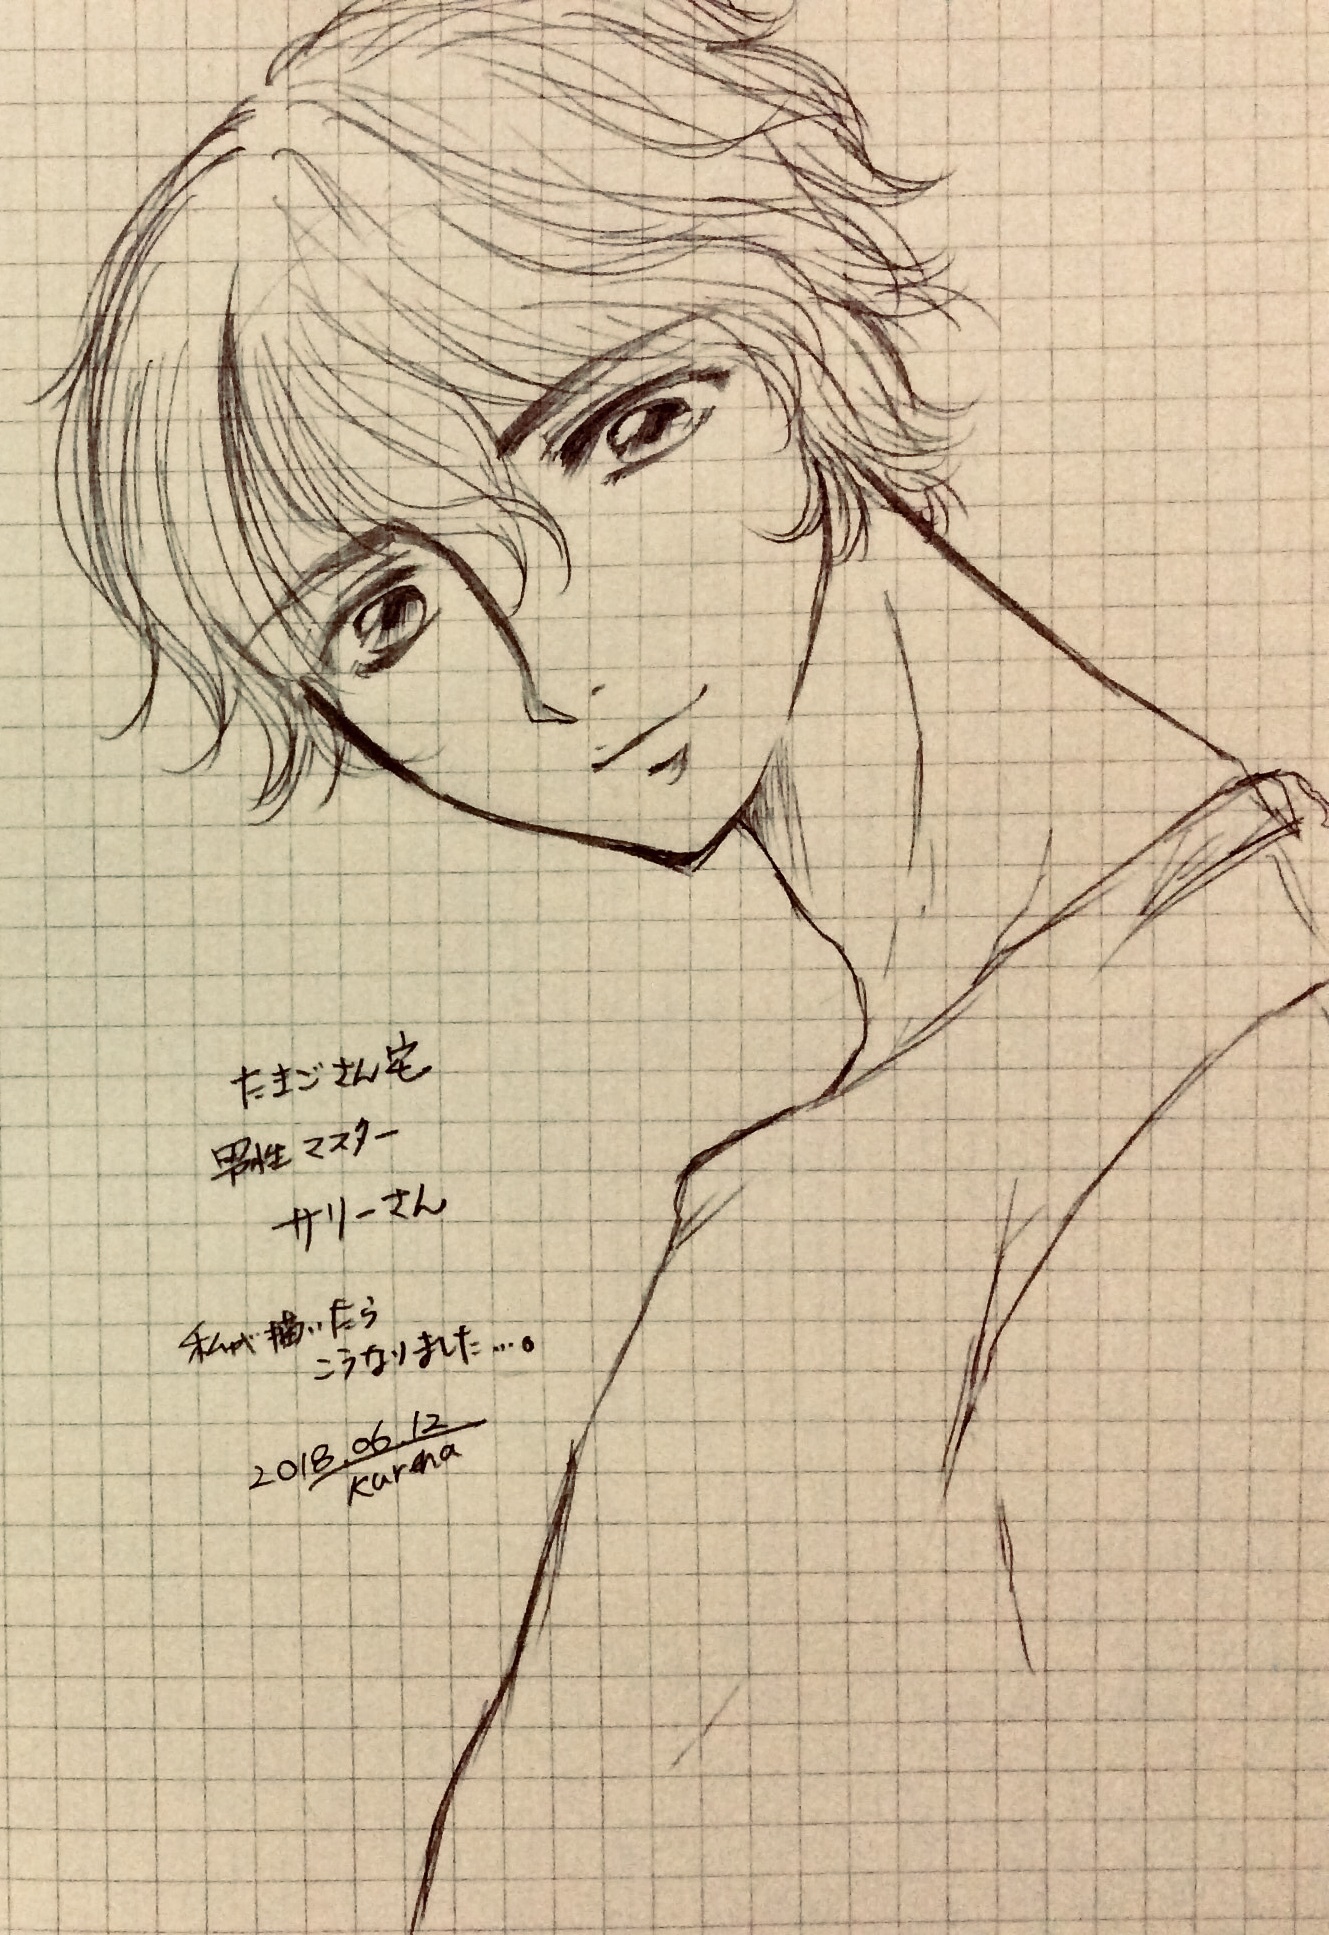 たまごさん宅
男性マスター
サリーさん
私が描いたら
こうなりました…。
2018.06.12
Kurena